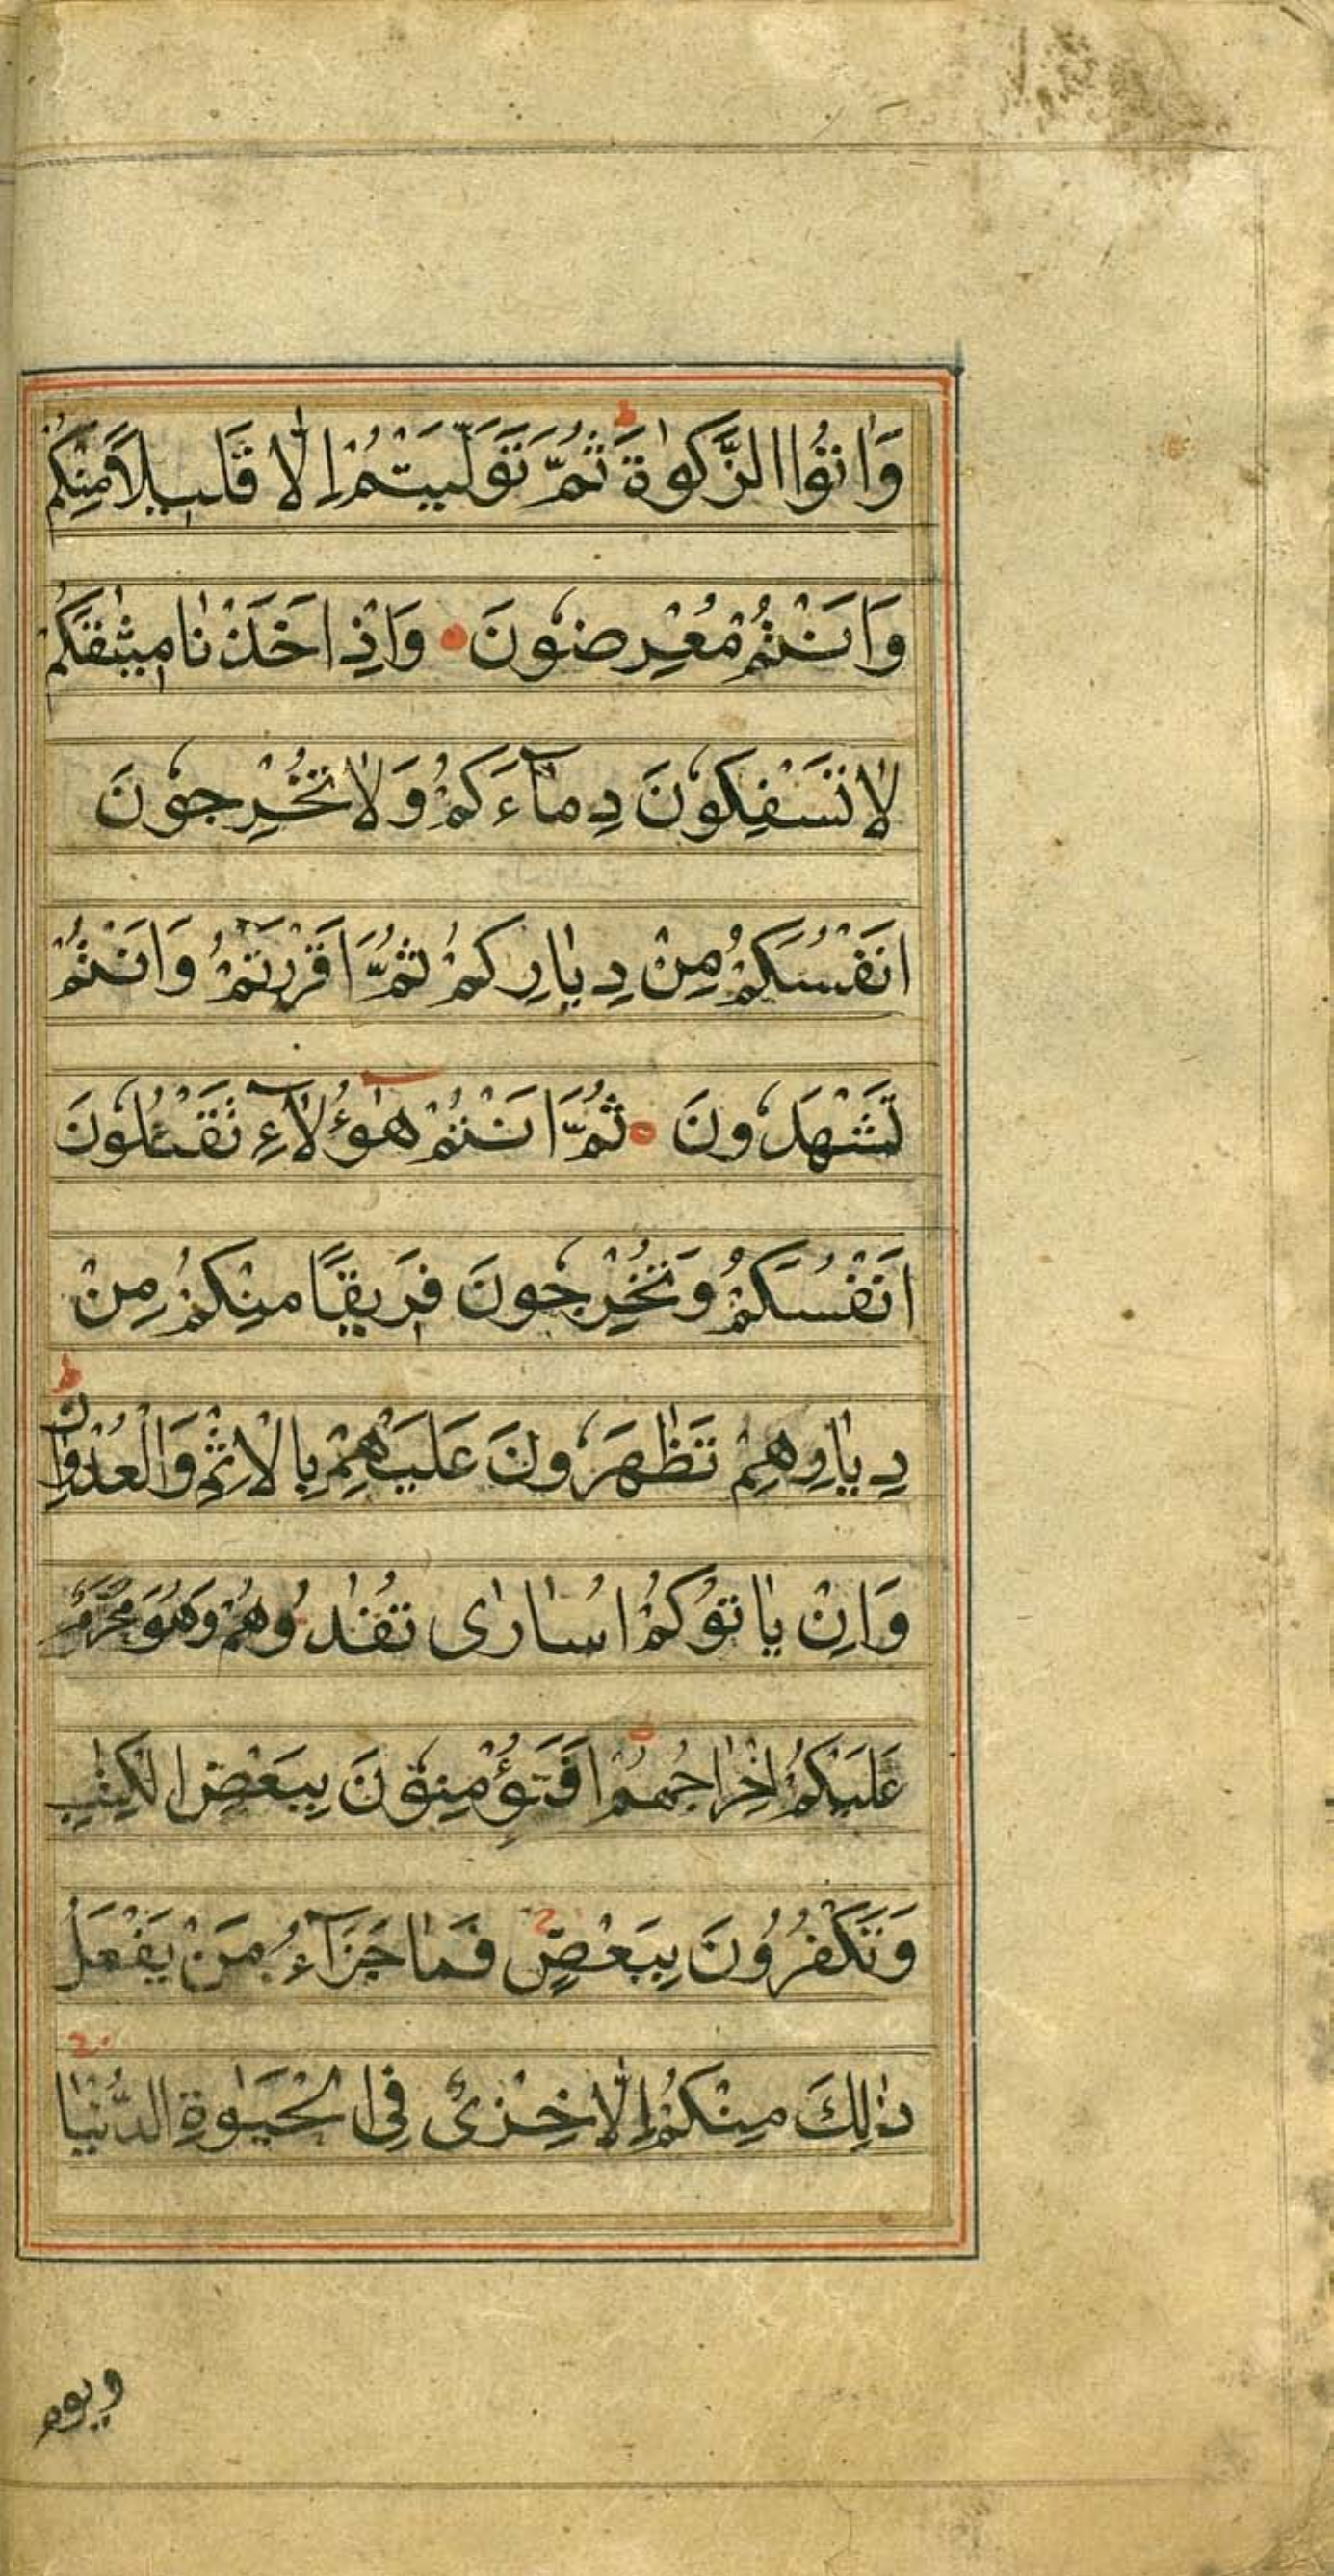 وَاٰتُوا الزَّكوٰةَ ط ثُمَّ تَوَلَّيْتُمْ اِلَّا قَلِيلًا مِنْكُمْ
وَاَنْتُمْ مُعْرِضُونَ وَاِذْ اَخَذْنٰا مِيثٰقَكُمْ
لٰا تَسْفِكُونَ دِمٰآءَكُمْ وَلٰا تُخْرِجُونَ
اَنْفُسَكُمْ مِنْ دِيٰارِكُمْ ثُمَّ اَقْرَرْتُمْ وَاَنْتُمْ
تَشْهَدُونَ ثُمَّ اَنْتُمْ هٰؤُلٰآءِ تَقْتُلُونَ
اَنْفُسَكُمْ وَتُخْرِجُونَ فَرِيقًا مِنْكُمْ مِنْ
دِيٰارِهِمْ تَظٰهَرُونَ عَلَيْهِمْ بِالْاِثْمِ وَالْعُدْوٰانِ ط
وَاِنْ يٰاتُوكُمْ اُسٰارٰى تُفٰدُوهُمْ وَهُوَ مُحَرَّمٌ
عَلَيْكُمْ اِخْرٰاجُهُمْ اَفَتُؤْمِنُونَ بِبَعْضِ الْكِتٰبِ
وَتَكْفُرُونَ بِبَعْضٍ ج فَمٰا جَزَآءُ مَنْ يَفْعَلُ
ذٰلِكَ مِنْكُمْ اِلَّا خِزْىٌ فِى الْحَيٰوةِ الدُّنْيٰا ج
ويوم